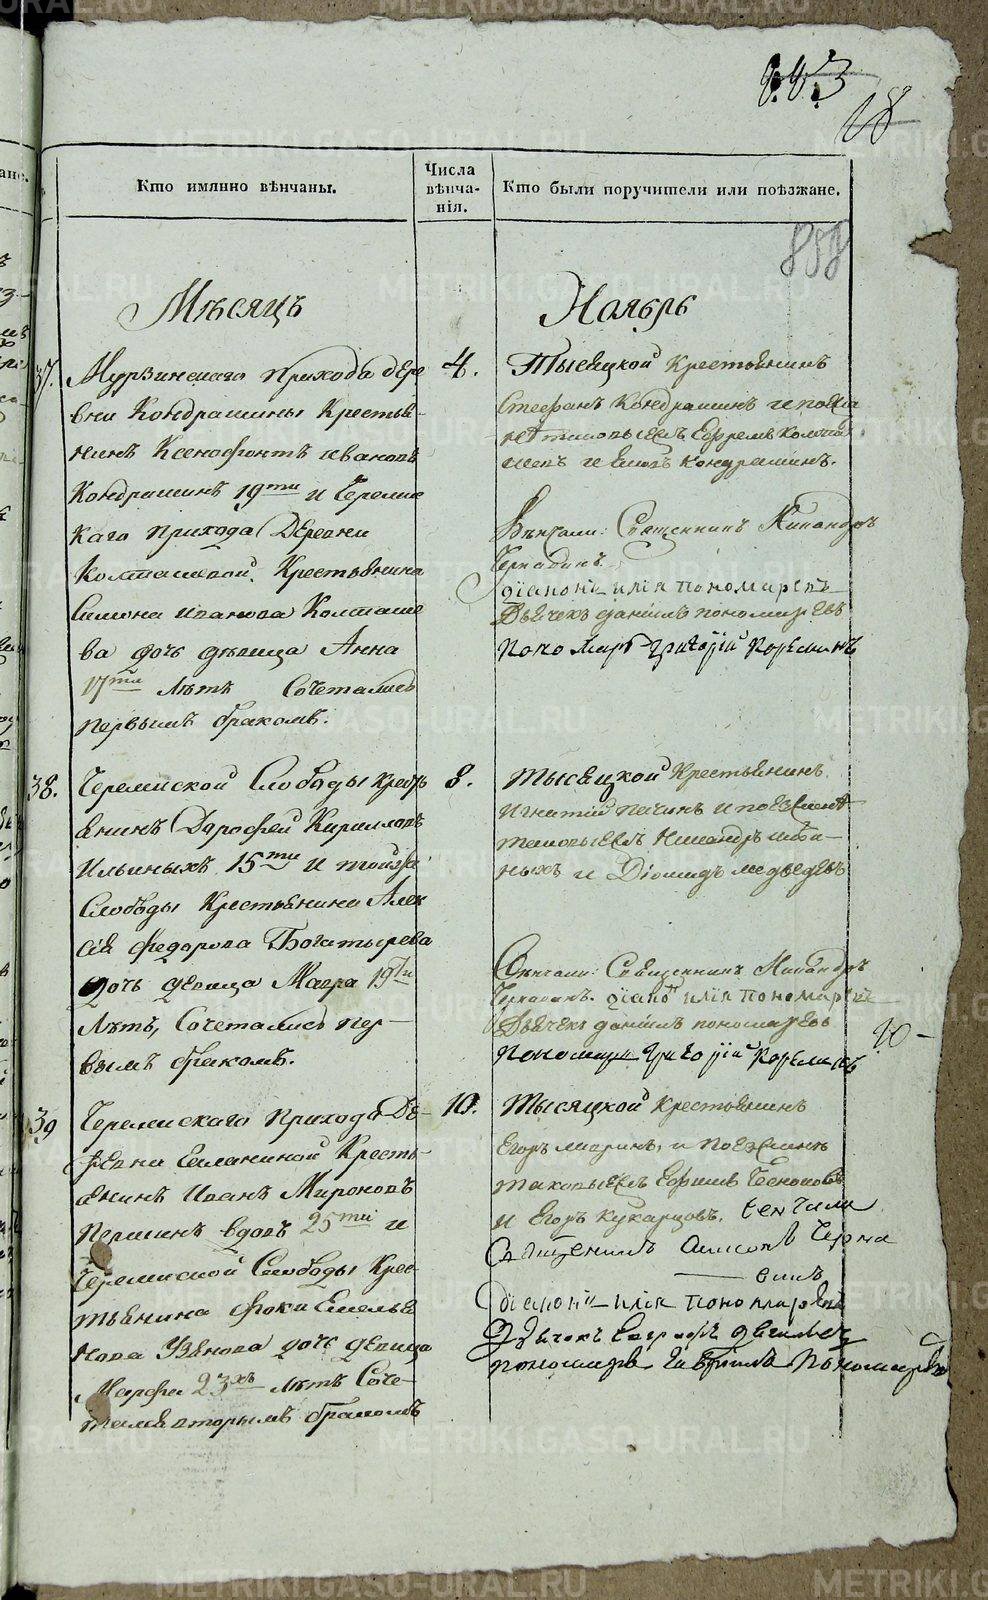 18
Кто имянно вѣнчаны.
Числа
вѣнча-
нія.
Кто были поручители или поѣзжане.
858
Мѣсяцъ
Ноябрь
37.
Мурзинскаго прихода дере
вни Кондрашины Крестья-
нинъ Ксенофонтъ ивановъ
Кондрашинъ 19ти и Черемис
каго прихода Деревни
Колташевой Крестьянина
Симона иванова Колташе
ва дочь дѣвица Анна
17ти лѣтъ Сочетались
первымъ бракомъ.
4.
Тысецкой крестьянинъ
Стефанъ Кондрашинъ и поезжа
Ефремъ
и Кондрашинъ.
Вѣнчали: Священникъ Никандръ
діаконъ илія пономаревъ
Дьячекъ даніилъ пономаревъ
Пономарь григорій Корелинъ
38.
Черемиской Слободы крест
янинъ Дорофей Кирилловъ
Ильиныхъ 15ти и тойже
Слободы Крестьянина Алек
сія федорова Богатырева
дочь девица Мавра 19ти
Лѣтъ, Сочетались пер-
вымъ бракомъ.
8.
тысецкой Крестьянинъ
игнатій пичинъ и поезжане
таковыежъ Никандръ
ныхъ и Діомидъ медведевъ
Вѣнчали: Священникъ Никандръ
діаконъ илія пономаревъ
Дьячекъ даніилъ пономаревъ
пономарь григорій Корелинъ
10-
39
Черемискаго прихода Де-
ревни Крестъ-
янинъ Иванъ Мироновъ
Першинъ вдовъ 25ти и
Черемиской Слободы Крес-
тьянина Фоки Емелья
нова Узянова дочь девица
Марфа 23хъ лѣтъ Соче-
тались вторымъ бракомъ
10.
Тысяцкой крестьянинъ
Егоръ и поезжане
таковыежъ Ефимъ
и Егоръ Кукарцовъ. венчали
Священникъ
діаконъ илія пономаревъ
Дьячекъ
пономарь Гавріилъ Пономаревъ
METRIKI.GASO-URAL.RU